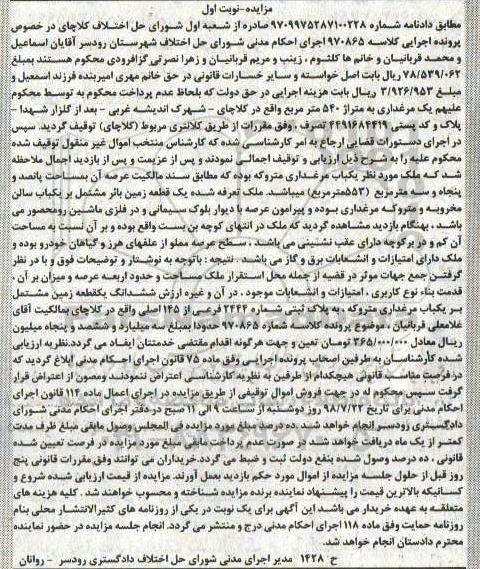 مزایده-نوبت اول
مطابق دادنامه شماره ۹۷۰۹۹۷۵۲۸۷۱۰۰۲۲۸ صادره از شعبه اول شورای حل اختلاف کلاچای در خصوص
پرونده اجرایی کلاسه ۹۷۰۸۶۵ اجرای احکام مدنی شورای حل اختلاف شهرستان رودسر آقایان اسماعیل
و محمد قربانیان و خانم ها کلثوم ، زینب و مریم قربانیان و زهرا نصرتی گزافرودی محکوم هستند بمبلغ
۷۸/۵۳۹/۰۶۲ ریال بابت اصل خواسته و سایر خسارات قانونی در حق خانم مهری امیربنده فرزند اسمعیل و
مبلغ ۳/۹۲۶/۹۵۳ ریال بابت هزینه اجرایی در حق دولت که بلحاظ عدم پرداخت محکوم به توسط محکوم
علیهم یک مرغداری به متراژ ۵۴۰ متر مربع واقع در کلاچای – شهرک اندیشه غربی – بعد از گلزار شهدا –
پلاک و کد پستی ۴۴۹۱۶۸۴۳۱۹ تصرف ، وفق مقررات از طریق کلانتری مربوط (کلاچای) توقیف گردید. سپس
در اجرای دستورات قضایی ارجاع به امر کارشناسی شده که کارشناس منتخب اموال غیر منقول توقیف شده
محکوم علیه را به شرح ذیل ارزیابی و توقیف اجمالی نمودند و پس از عزیمت و پس از بازدید اجمال ملاحظه
شد که ملک مورد نظر یکباب مرغداری متروکه بوده که مطابق سند مالکیت عرصه آن بمساحت پانصد و
پنجاه و سه مترمربع (۵۵۳مترمربع) میباشد. ملک تعرفه شده یک قطعه زمین بائر مشتمل بر یکباب سالن
مخروبه و متروکه مرغداری بوده و پیرامون عرصه با دیوار بلوک سیمانی و در فلزی ماشین رومحصور می
باشد ، بهنگام بازدید مشاهده گردید که ملک در انتهای کوچه بن بست واقع بوده و بر آن نسبت به مساحت
آن کم و در برکوچه دارای عقب نشینی می باشد ، سطح عرصه مملو از علفهای هرز و گیاهان خودرو بوده و
ملک دارای امتیازات و انشعابات برق و گاز می باشد . نتیجه : باتوجه به نوشتار و توضیحات فوق و با در نظر
گرفتن جمع جهات موثر در قضیه از جمله محل استقرار ملک مساحت و حدود اربعه عرصه و میزان بر آن ،
قدمت بناء نوع کاربری ، امتیازات و انشعابات موجود ، در آن و غیره ارزش ششدانگ یکقطعه زمین مشتمل
بر یکباب مرغداری متروکه ، به پلاک ثبتی شماره ۲۴۴۴ فرعی از ۱۴۵ اصلی واقع در کلاچای بمالکیت آقای
غلامعلی قربانیان ، موضوع پرونده کلاسه شماره ۹۷۰۸۶۵ حدودا بمبلغ سه میلیارد و ششصد و پنجاه میلیون
ریال معادل ۳۶۵/۰۰۰/۰۰۰ تومان تعین و جهت هرگونه اقدام مقتضی خدمتتان ایفاد می گردد.نظریه ارزیابی
شده کارشناسان به طرفین اصحاب پرونده اجرایی وفق ماده ۷۵ قانون اجرای احکام مدنی ابلاغ گردید که
در فرصت مناسب قانونی هیچکدام از طرفین به نظریه کارشناسی اعتراض ننمودند ومصون از اعتراض قرار
گرفت سپس محکوم له در جهت فروش اموال توقیفی از طریق مزایده در اجرای اعمال ماده ۱۱۴ قانون اجرای
احکام مدنی برای تاریخ ۹۸/۷/۲۲ روز دوشنبه از ساعت ۹ الی ۱۱ صبح در دفتر اجرای احکام مدنی شورای
دادگستری رودسر انجام خواهد شد. ده درصد مبلغ مورد مزایده فی المجلس وصول مابقی مبلغ ظرف مدت
کمتر از یک ماه دریافت خواهد شد در صورت عدم پرداخت مابقی مبلغ مورد مزایده در فرصت تعیین شده
قانونی ، ده درصد وصول شده بنفع دولت ثبت و ضبط می گردد.خریداران می توانند وفق مقررات قانونی پنج
روز قبل از حلول جلسه مزایده از اموال مورد حکم بازدید بعمل آورند. مزایده از قیمت ارزیابی شده شروع و
کسانیکه بالاترین قیمت را پیشنهاد نماینده برنده مزایده شناخته و محسوب خواهند شد . کلیه هزینه های
متعلقه به عهده خریدار می باشد این آگهی برای یک نوبت در یکی از روزنامه های کثیرالانتشار محلی بنام
روزنامه حمایت وفق ماده ۱۱۸ اجرای احکام مدنی درج و منتشر می گردد. انجام جلسه مزایده در حضور نماینده
محترم دادستان انجام خواهد شد.
ح ۱۴۲۸ مدیر اجرای مدنی شورای حل اختلاف دادگستری رودسر – روانان